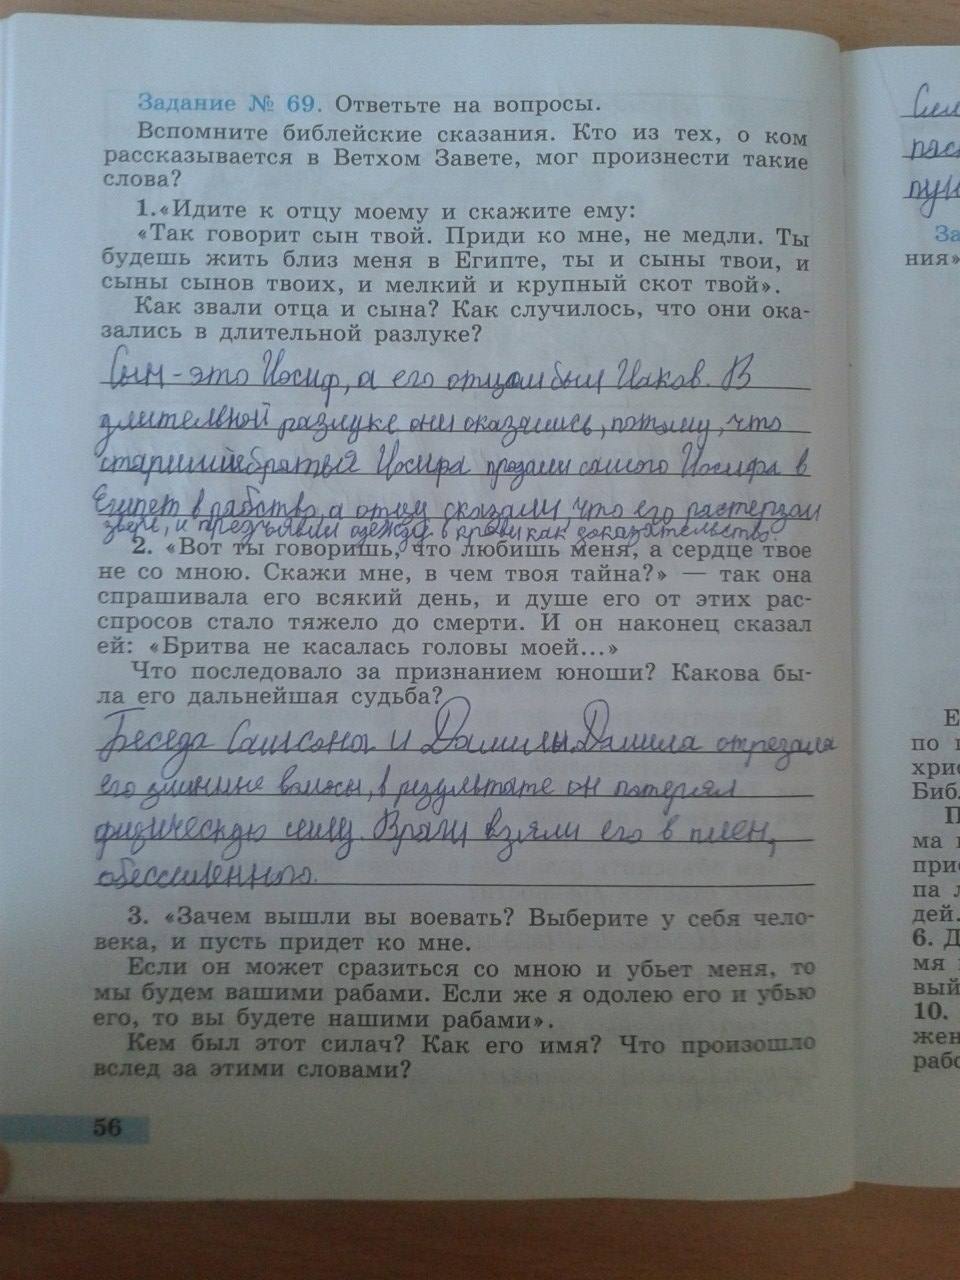 Задание № 69. Ответьте на вопросы.
Вспомните библейские сказания. Кто из тех, о ком
рассказывается в Ветхом Завете, мог произнести такие
слова?
1.«Идите к отцу моему и скажите ему:
«Так говорит сын твой. Приди ко мне, не медли. Ты
будешь жить близ меня в Египте, ты и сыны твои, и
сыны сынов твоих, и мелкий и крупный скот твой».
Как звали отца и сына? Как случилось, что они ока-
зались в длительной разлуке?
Сын - это Иосиф, а его отцом был Иаков. В
длительной разлуке они оказались, потому, что
старший братья Иосифа продали самого Иосифа в
Египет в рабство, а отцу сказали что его растерзал
зверь, и предъявили одежду в крови как доказательство.
2. «Вот ты говоришь, что любишь меня, а сердце твое
не со мною. Скажи мне, в чем твоя тайна?» — так она
спрашивала его всякий день, и душе его от этих рас-
спросов стало тяжело до смерти. И он наконец сказал
ей: «Бритва не касалась головы моей...»
Что последовало за признанием юноши? Какова бы-
ла его дальнейшая судьба?
Беседа Самсона и Далилы. Далила отрезала
его длинные волосы, в результате он потерял
физическую силу. Враги взяли его в плен,
обессиленного.
3. «Зачем вышли вы воевать? Выберите у себя чело-
века, и пусть придет ко мне.
Если он может сразиться со мною и убьет меня, то
мы будем вашими рабами. Если же я одолею его и убью
его, то вы будете нашими рабами».
Кем был этот силач? Как его имя? Что произошло
вслед за этими словами?
56
За
ния»
Е
по
хри
Биб
П
ма
при
па
дей.
6. Д
мя
вый
10.
жен
рабо